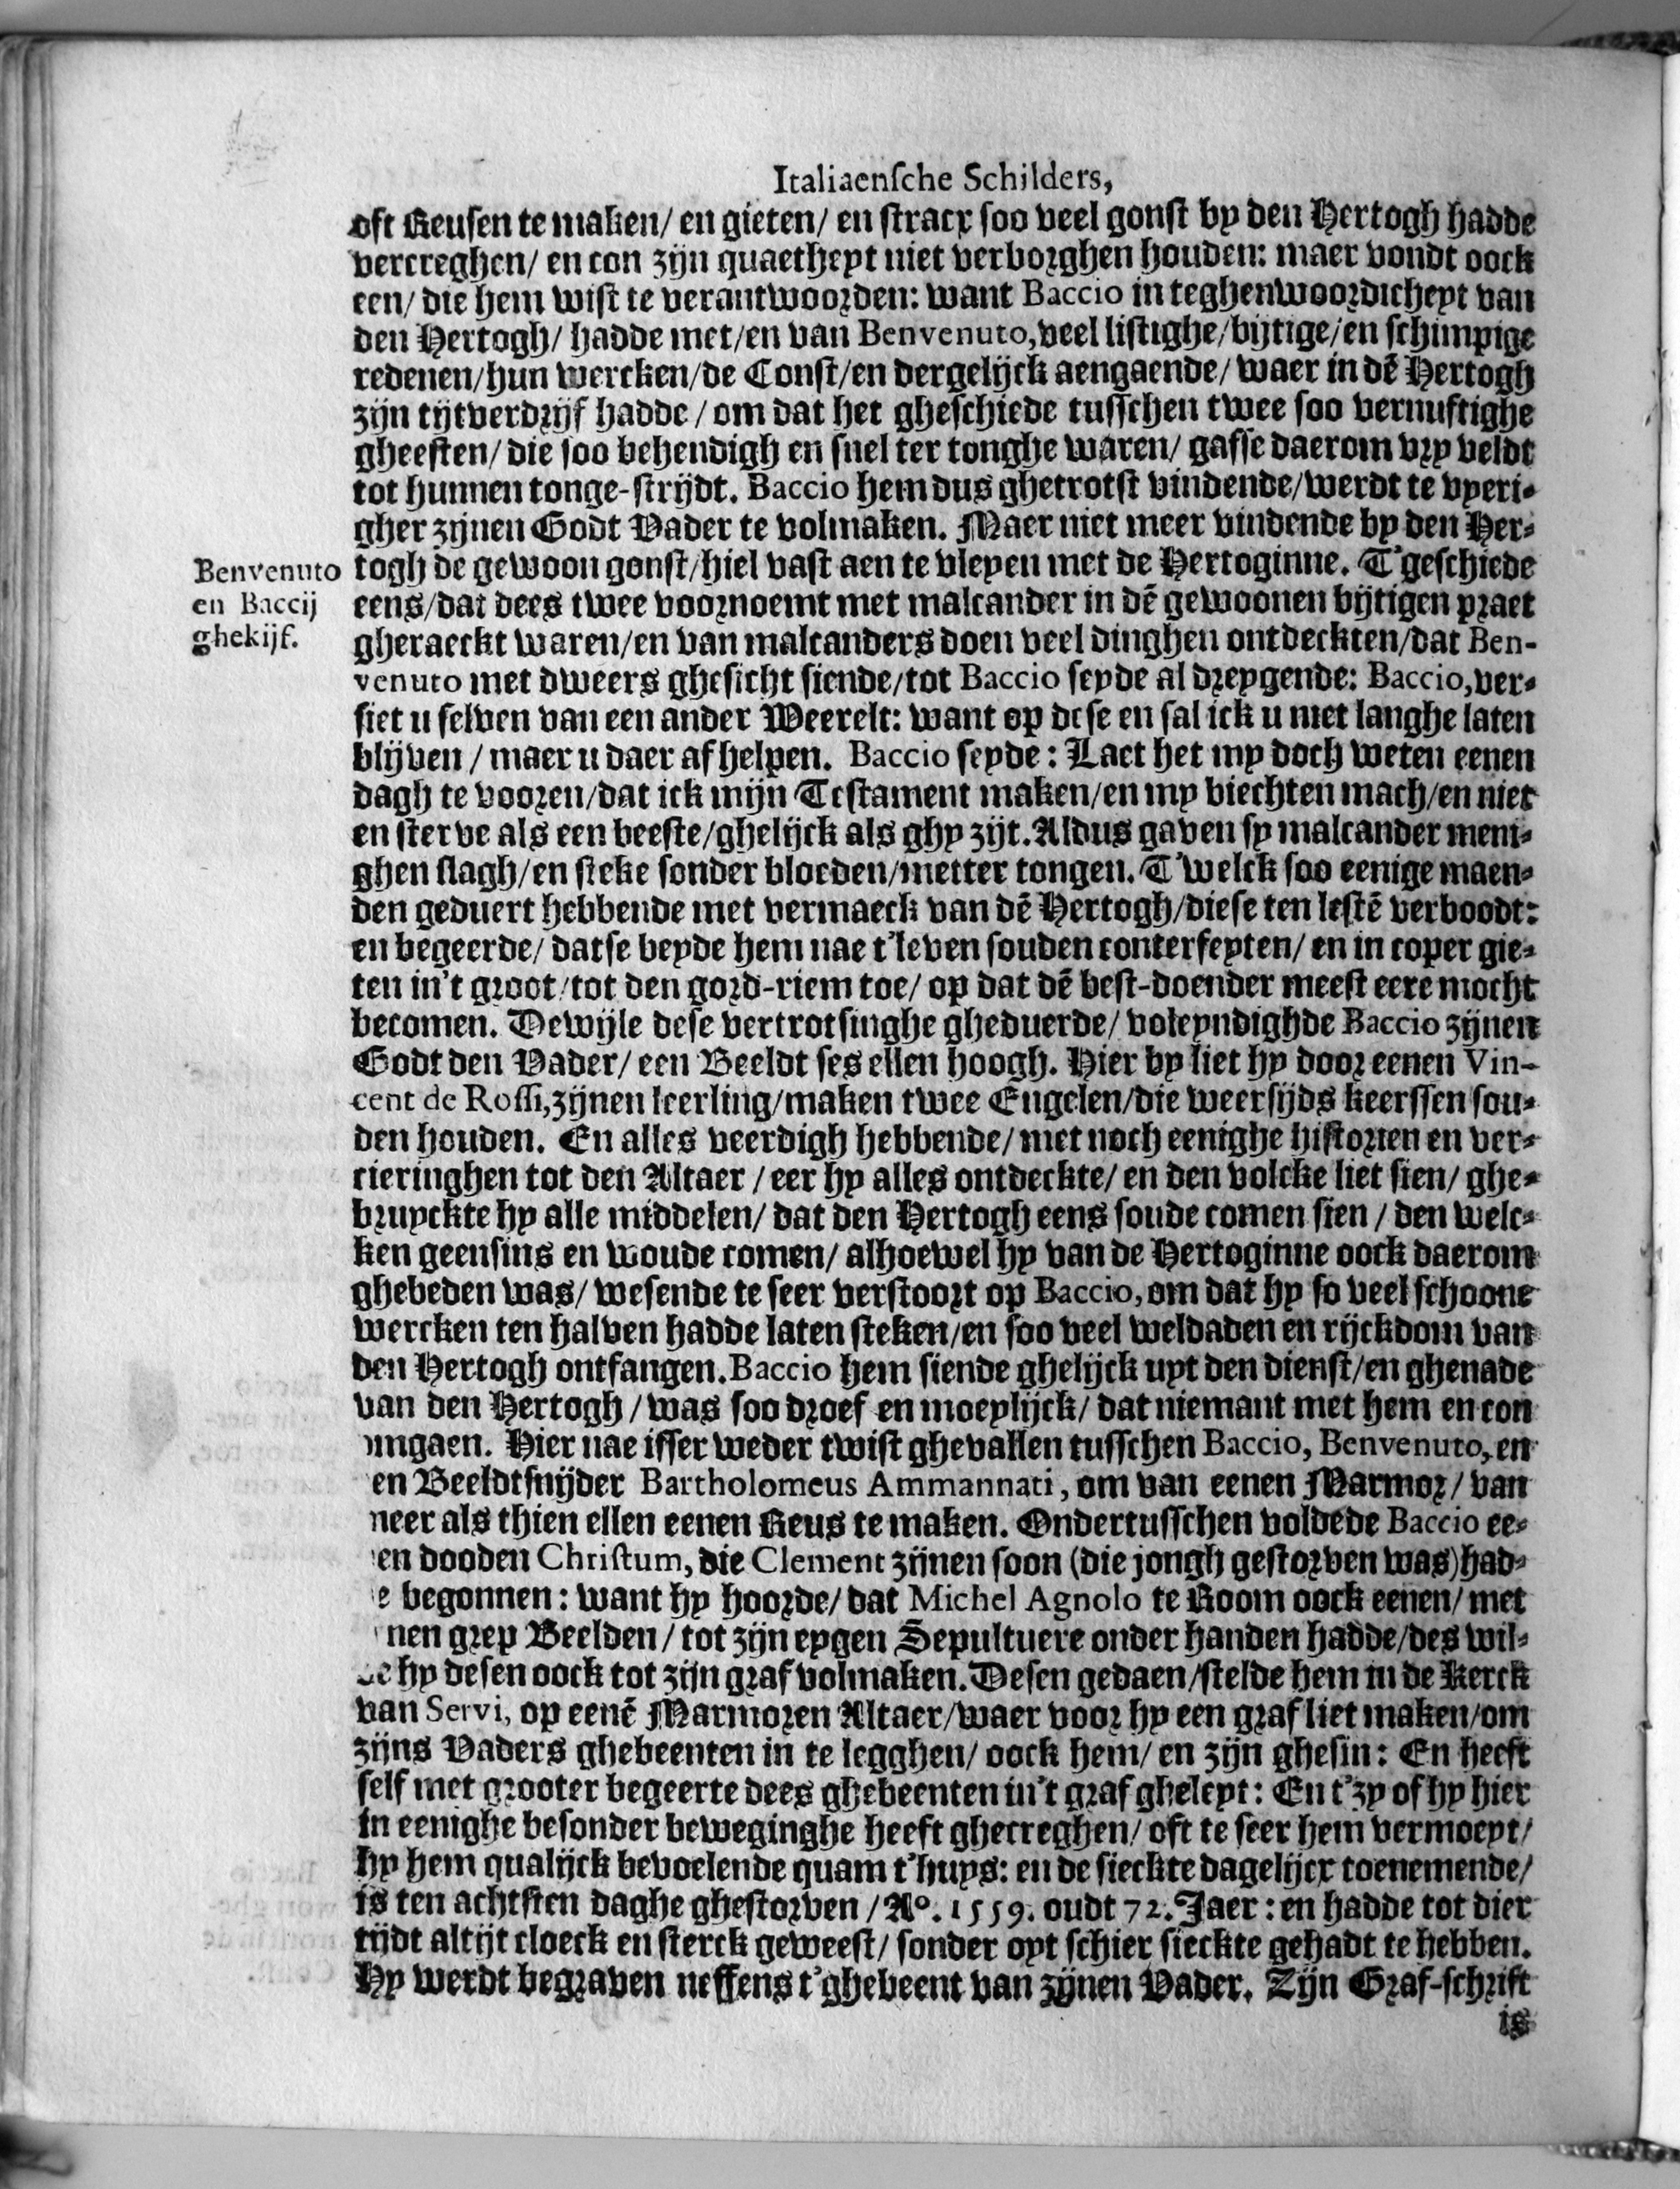 Italiaensche Schilders,
oft Reusen te maken/ en gieten/ en stracx soo veel gonst by den Hertogh hadde
vercreghen/ en con zijn quaetheyt niet verborghen houden: maer vondt oock
een/ die hem wist te verantwoorden: want Baccio in teghenwoordicheyt van
den Hertogh/ hadde met/en van Benvenuto, veel listighe/bijtige/en schimpige
redenen/hun wercken/de Const/en dergelijck aengaende/ waer in dē Hertogh
zijn tijtverdrijf hadde / om dat het gheschiede tusschen twee soo vernuftighe
gheesten/ die soo behendigh en snel ter tonghe waren/ gaffe daerom vry veldt
tot hunnen tonge-strijdt. Baccio hem dus ghetrotst vindende/werdt te vyeri-
gher zijnen Godt Vader te volmaken. Maer niet meer vindende by den Her-
togh de gewoon gonst/hiel vast aen te vleyen met de Hertoginne. T'geschiede
eens/dat dees twee voornoemt met malcander in dē gewoonen bijtigen praet
gheraeckt waren/en van malcanders doen veel dinghen ontdeckten/dat Ben-
venuto met dweers ghesicht siende/tot Baccio seyde al dreygende: Baccio, ver-
siet u selven van een ander Weerelt: want op dese en sal ick u niet langhe laten
blijven / maer u daer af helpen. Baccio seyde: Laet het my doch weten eenen
dagh te vooren/dat ick mijn Testament maken/en my biechten mach/en niet
en sterve als een beeste/ghelijck als ghy zijt. Aldus gaven sy malcander meni-
ghen slagh/en steke sonder bloeden/metter tongen. T'welck soo eenige maen-
den geduert hebbende met vermaeck van dē Hertogh/diese ten lestē verboodt:
en begeerde/ datse beyde hem nae t'leven souden conterfeyten/ en in coper gie-
ten in't groot/tot den gord-riem toe/ op dat dē best-doender meest eere mocht
becomen. Dewijle dese vertrotsinghe gheduerde/ voleyndighde Baccio zijnen
Godt den Vader/ een Beeldt ses ellen hoogh. Hier by liet hy door eenen Vin-
cent de Rossi, zijnen leerling/maken twee Engelen/die weersijds keerssen sou-
den houden. En alles veerdigh hebbende/ met noch eenighe historien en ver-
cieringhen tot den Altaer / eer hy alles ontdeckte/ en den volcke liet sien/ ghe-
bruyckte hy alle middelen/ dat den Hertogh eens soude comen sien / den welc-
ken geensins en woude comen/ alhoewel hy van de Hertoginne oock daerom
ghebeden was/ wesende te seer verstoort op Baccio, om dat hy so veel schoone
wercken ten halven hadde laten steken/en soo veel weldaden en rijckdom van
den Hertogh ontfangen. Baccio hem siende ghelijck uyt den dienst/en ghenade
van den Hertogh / was soo droef en moeylijck/ dat niemant met hem en con
omgaen. Hier nae isser weder twist ghevallen tusschen Baccio, Benvenuto, en
en Beeldtsnijder Bartholomeus Ammannati, om van eenen Marmor/ van
meer als thien ellen eenen Reus te maken. Ondertusschen voldede Baccio ee-
en dooden Christum, die Clement zijnen soon (die jongh gestorven was) had-
e begonnen: want hy hoorde/ dat Michel Agnolo te Room oock eenen/ met
nen grep Beelden / tot zijn eygen Sepultuere onder handen hadde/des wil-
de hy desen oock tot zijn graf volmaken. Desen gedaen/stelde hem in de Kerck
van Servi, op eenē Marmoren Altaer/waer voor hy een graf liet maken/om
zijns Vaders ghebeenten in te legghen/ oock hem/ en zijn ghesin: En heeft
self met grooter begeerte dees ghebeenten in't graf gheleyt: En t'zy of hy hier
in eenighe besonder beweginghe heeft ghecreghen/ oft te seer hem vermoeyt/
hy hem qualijck bevoelende quam t'huys: en de sieckte dagelijcx toenemende/
is ten achtsten daghe ghestorven / A°. 1559. oudt 72. Jaer: en hadde tot dier
tijdt altijt cloeck en sterck geweest/ sonder oyt schier sieckte gehadt te hebben.
Hy werdt begraven neffens t'ghebeent van zijnen Vader. Zijn Graf-schrift
is
Benvenuto
en Baccij
ghekijf.